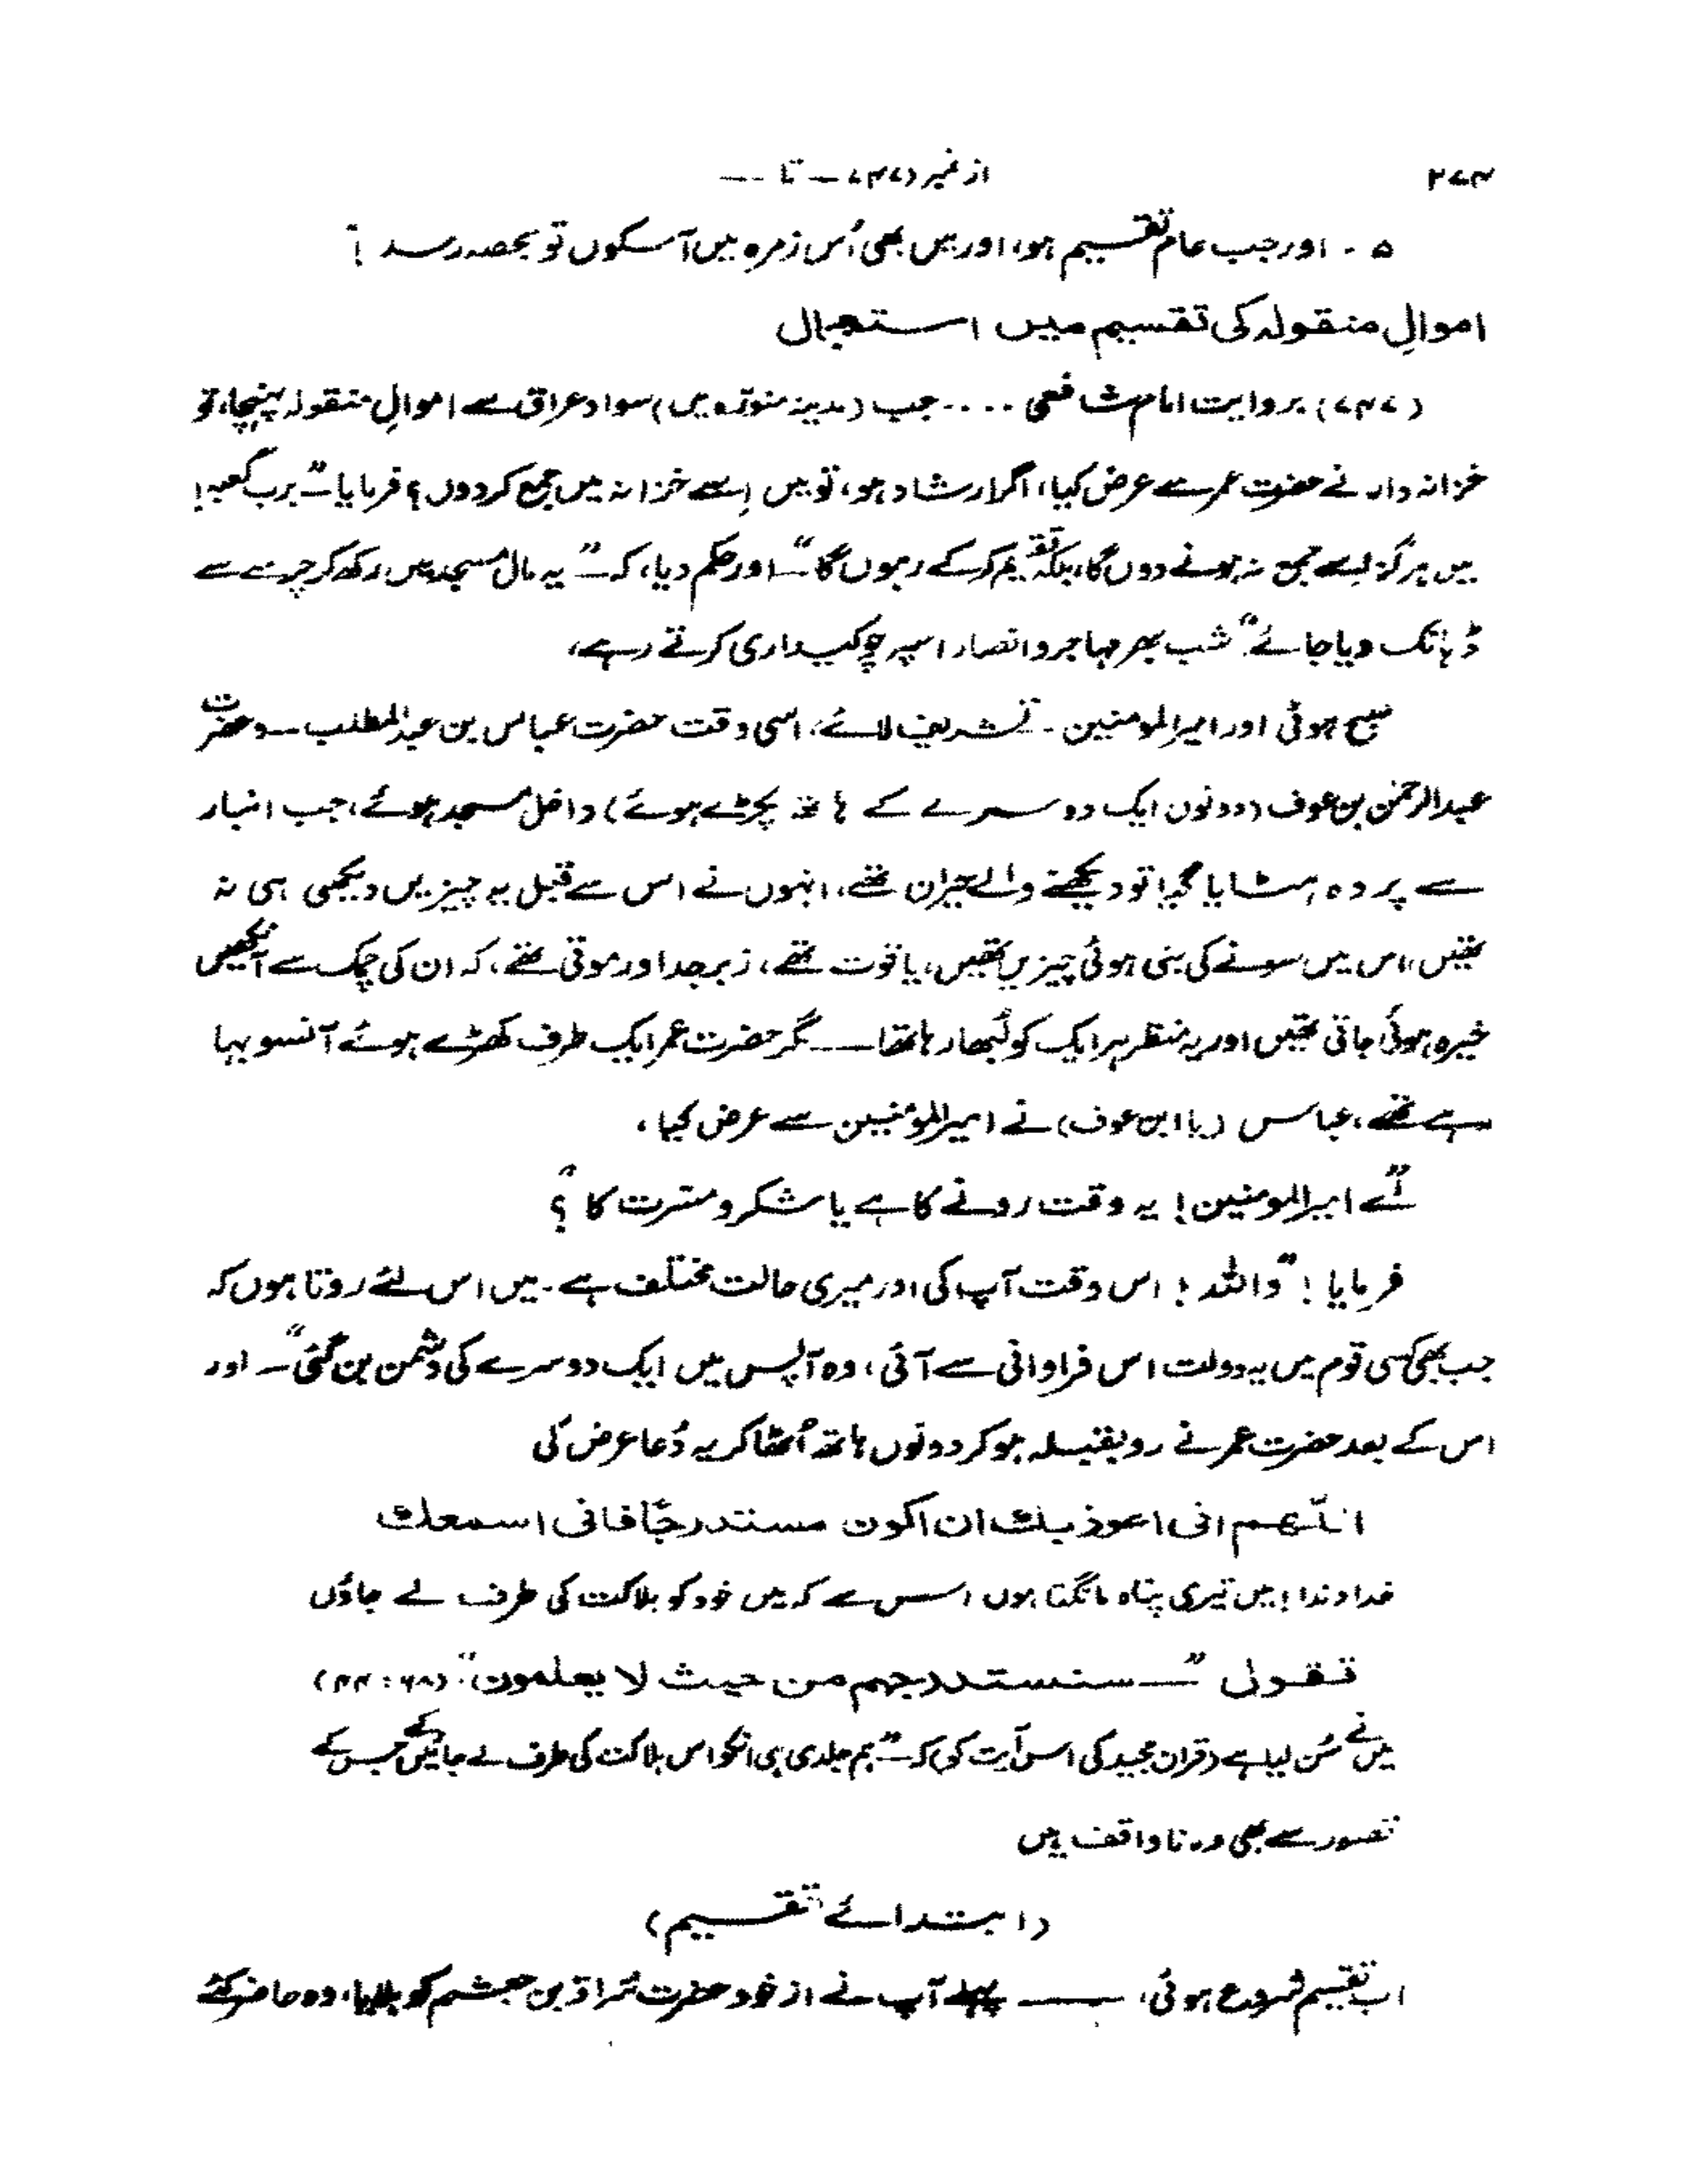 ۲۷۴ از نمبر (۷۴۷ — تا --
۵ - اور جب عام تقسیم ہو، اور میں بھی اُس زمرہ میں آسکوں تو بحصہ رسد !
اموالِ منقولہ کی تقسیم میں استعجال
(۷۴۷) بروایت امام شافعی .... جب (مدینہ منورہ میں) سواد عراق سے اموالِ منقولہ پہنچا، تو
خزانہ دار نے حضرت عمر سے عرض کیا، اگر ارشاد ہو، تو میں اِسے خزانہ میں جمع کردوں ؟ فرمایا — "برب کعبہ!
میں ہرگز اِسے جمع نہ ہونے دوں گا، بلکہ تقسیم کرکے رہوں گا" — اور حکم دیا، کہ — "یہ مال مسجد میں رکھ کر چمڑے سے
ڈہانک دیا جائے" شب بھر مہاجر و انصار اسپر چوکیداری کرتے رہے،
صبح ہوئی اور امیر المومنین - تشریف لائے، اسی وقت حضرت عباس بن عبد المطلب — و حضرت
عبدالرحمٰن بن عوف (دونوں ایک دوسرے کے ہاتھ پکڑے ہوئے) داخل مسجد ہوئے، جب انبار
سے پردہ ہٹایا گیا تو دیکھنے والے حیران تھے، انہوں نے اس سے قبل یہ چیزیں دیکھی ہی نہ
تھیں، اس میں سونے کی بنی ہوئی چیزیں تھیں، یاقوت تھے، زبرجد اور موتی تھے، کہ ان کی چمک سے آنکھیں
خیرہ ہوئی جاتی تھیں اور یہ منظر ہر ایک کو لُبھا رہا تھا — مگر حضرت عمر ایک طرف کھڑے ہوئے آنسو بہا
رہے تھے، عباس (یا ابن عوف) نے امیر المؤمنین سے عرض کیا،
"اے امیر المومنین! یہ وقت رونے کا ہے یا شکر و مسرت کا ؟"
فرمایا ! "واللہ ! اس وقت آپ کی اور میری حالت مختلف ہے - میں اس لئے روتا ہوں کہ
جب بھی کسی قوم میں یہ دولت اس فراوانی سے آئی، وہ آپس میں ایک دوسرے کی دشمن بن گئی" — اور
اس کے بعد حضرت عمر نے رو بقبلہ ہو کر دونوں ہاتھ اُٹھا کر یہ دُعا عرض کی
اللّٰھم انی اعوذ بك ان اکون مستدرجًا فانی اسمعك
خداوندا! میں تیری پناہ مانگتا ہوں اس سے کہ میں خود کو ہلاکت کی طرف لے جاؤں
تقول — "سنستدرجہم من حیث لا یعلمون" (۶۸ : ۴۴)
میں نے سُن لیا ہے (قران مجید کی اس آیت کو) کہ — "ہم جلدی ہی انکو اس ہلاکت کی طرف لے جائیں گے جس کے
تصور سے بھی وہ ناواقف ہیں
(ابتدائے تقسیم)
اب تقسیم شروع ہوئی، — پہلے آپ نے از خود حضرت سُراقہ بن جعشم کو بلایا، وہ حاضر کئے